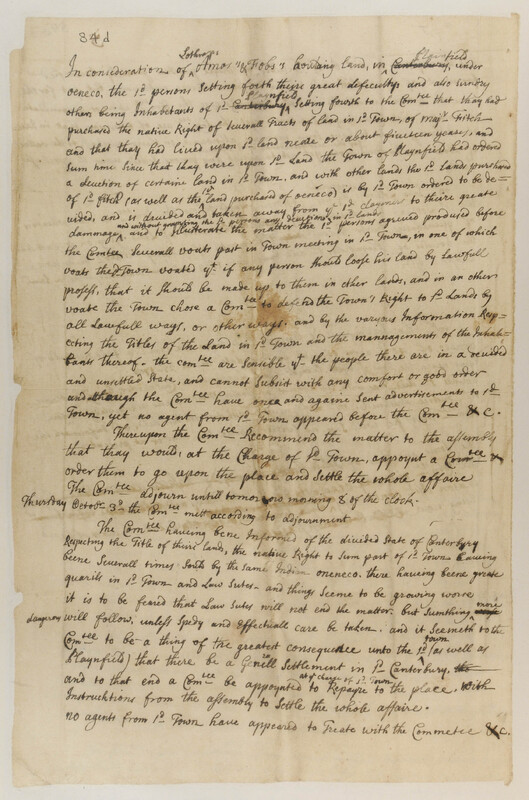 34d
Lothrops
In consideration of Amos's & Fobs's houlding land, in Canterbury, Playnfield under
oeneco, the sd persons Setting forth theire great defeculty and also sundry
others being Inhabitants of sd Canterbury, Playnfield Setting fourth to the Comtee that thay had
purchased the native Right of Severall Tracts of land in sd Town, of majr Fitch
and that thay had Lived upon sd land neare or about fiveteen years, and
sum time since that thay were upon sd Land the Town of Playnfield had ordered
a devition of certaine land in sd Town, and with other lands the sd Lands purchased
of sd Fitch (as well as the sd land purchased of oeneco) is by sd Town ordered to be de=
vided, and is devided and taken away from ye sd claymers to theire greate
and without quieting the sd persons any devisions in sd land
dammage, and to illusterate the matter the sd persons agrieved produsd before
the Comtee Severall voats past in Town meeting in sd Town, in one of which
voats the Town voated yt if any person Should loose his land by Lawfull
profess, that it Should be made up to them in other lands, and in an other
voate the Town chose a Comte to defend the Town's Right to sd Lands by
all Lawfull ways, or other ways. and by the varyous Information Resp=
ecting the Titles of the Land in sd Town and the mannagements of the Inhabi=
tants thereof. the comtee are Sensible yt the people there are in a devided
and unsetled State, and cannot Subsist with any comfort or good order
and although the Comtee have once and againe Sent advertisements to sd
Town, yet no agent from sd Town appeared before the Comtee & c.
Thereupon the Comtee Recommend the matter to the assembly
that thay would, at the Charge of sd Town, appoynt a Comtee &
order them to go upon the place and Settle the whole affaire
The Comtee adjourn untill tomorow morning 8 of the clock.
Thursday Octobr 3d the Comtee mett according to adjournment
The Comtee haveing bene Informed of the divided State of Canterbury
Respecting the Title of their lands, the native Right to Sum part of sd Town haveing
beene Severall times Sold by the same Indian oneneco. there haveing beene greate
quarils in sd Town and Law Sutes and things Seeme to be growing worse
it is to be feared that Law Sutes will not end the matter, but Sumthing more
dangerous will follow, unless Spedy and effectuall care be taken. and it Seemeth to the
Comtee to be a thing of the greatest consequence unto the sd town (as well as
Playnfield) that there be a Generll Settlement in sd Canterbury,
at ye charge of sd Town
and to that end a Comtee be appoynted to Repayre to the place, with
Instrucktions from the assembly to Settle the whole affaire.
no agents from sd Town have appeared to Treate with the Commetee & c.